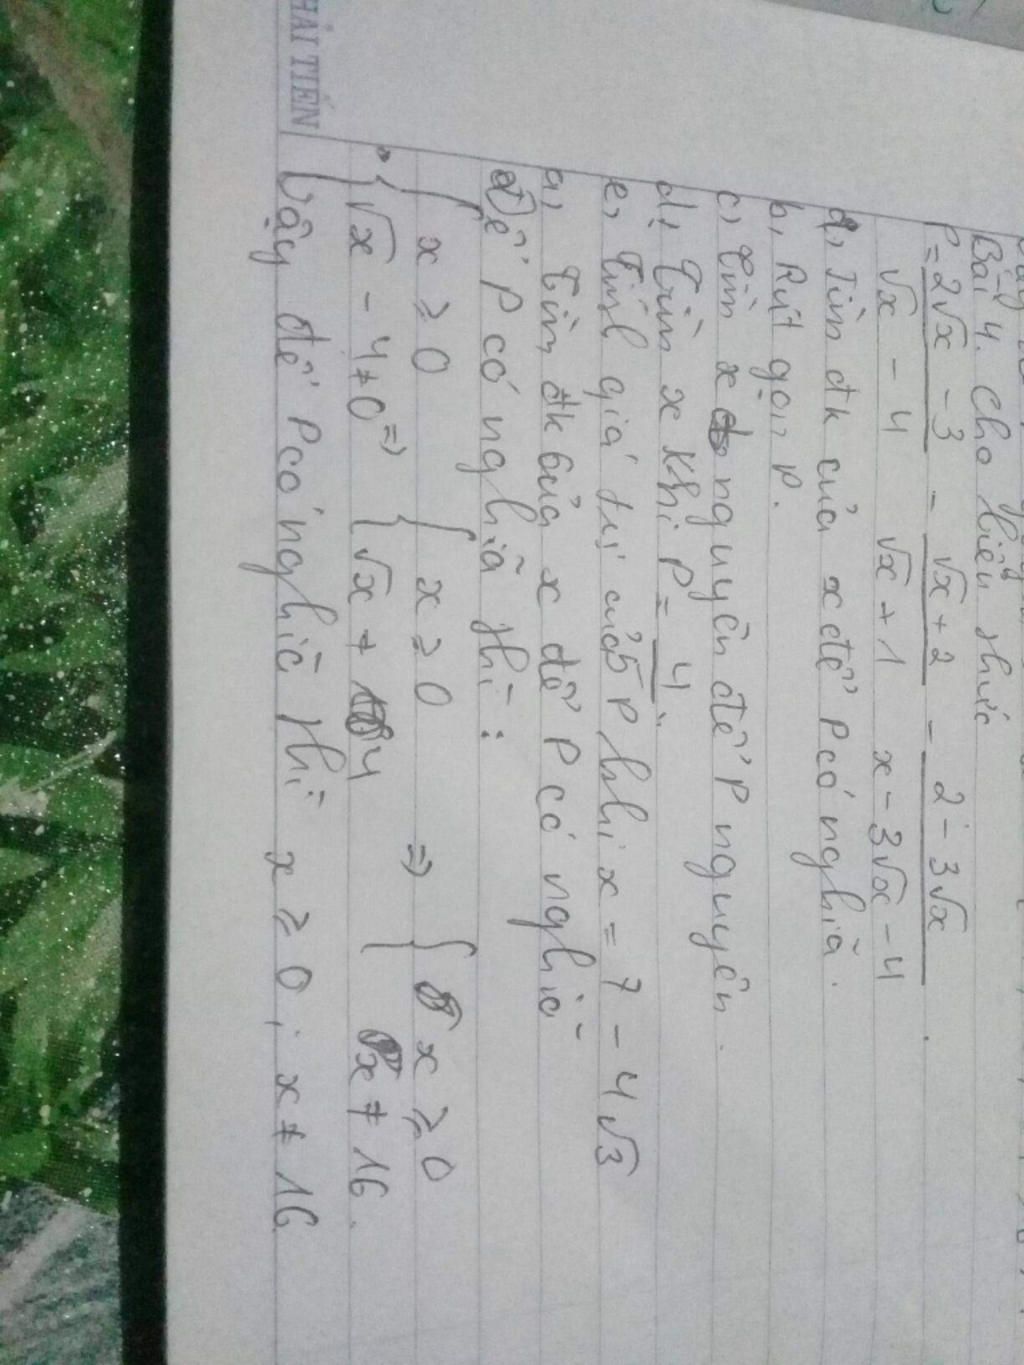 Bài 4. Cho biểu thức
P = 2√x - 3 / √x - 4 - √x + 2 / √x + 1 - 2 - 3√x / x - 3√x - 4
a, Tìm đk của x để P có nghĩa.
b, Rút gọn P.
c, Tìm x nguyên để P nguyên.
d, Tìm x khi P = 4/5
e, Tính giá trị của P khi x = 7 - 4√3
a, Tìm đk của x để P có nghĩa
Để P có nghĩa thì:
{ x ≥ 0 { x ≥ 0 => { x ≥ 0
{ √x - 4 ≠ 0 => { √x ≠ 4 { x ≠ 16.
Vậy để P có nghĩa thì x ≥ 0; x ≠ 16
HẢI TIẾN